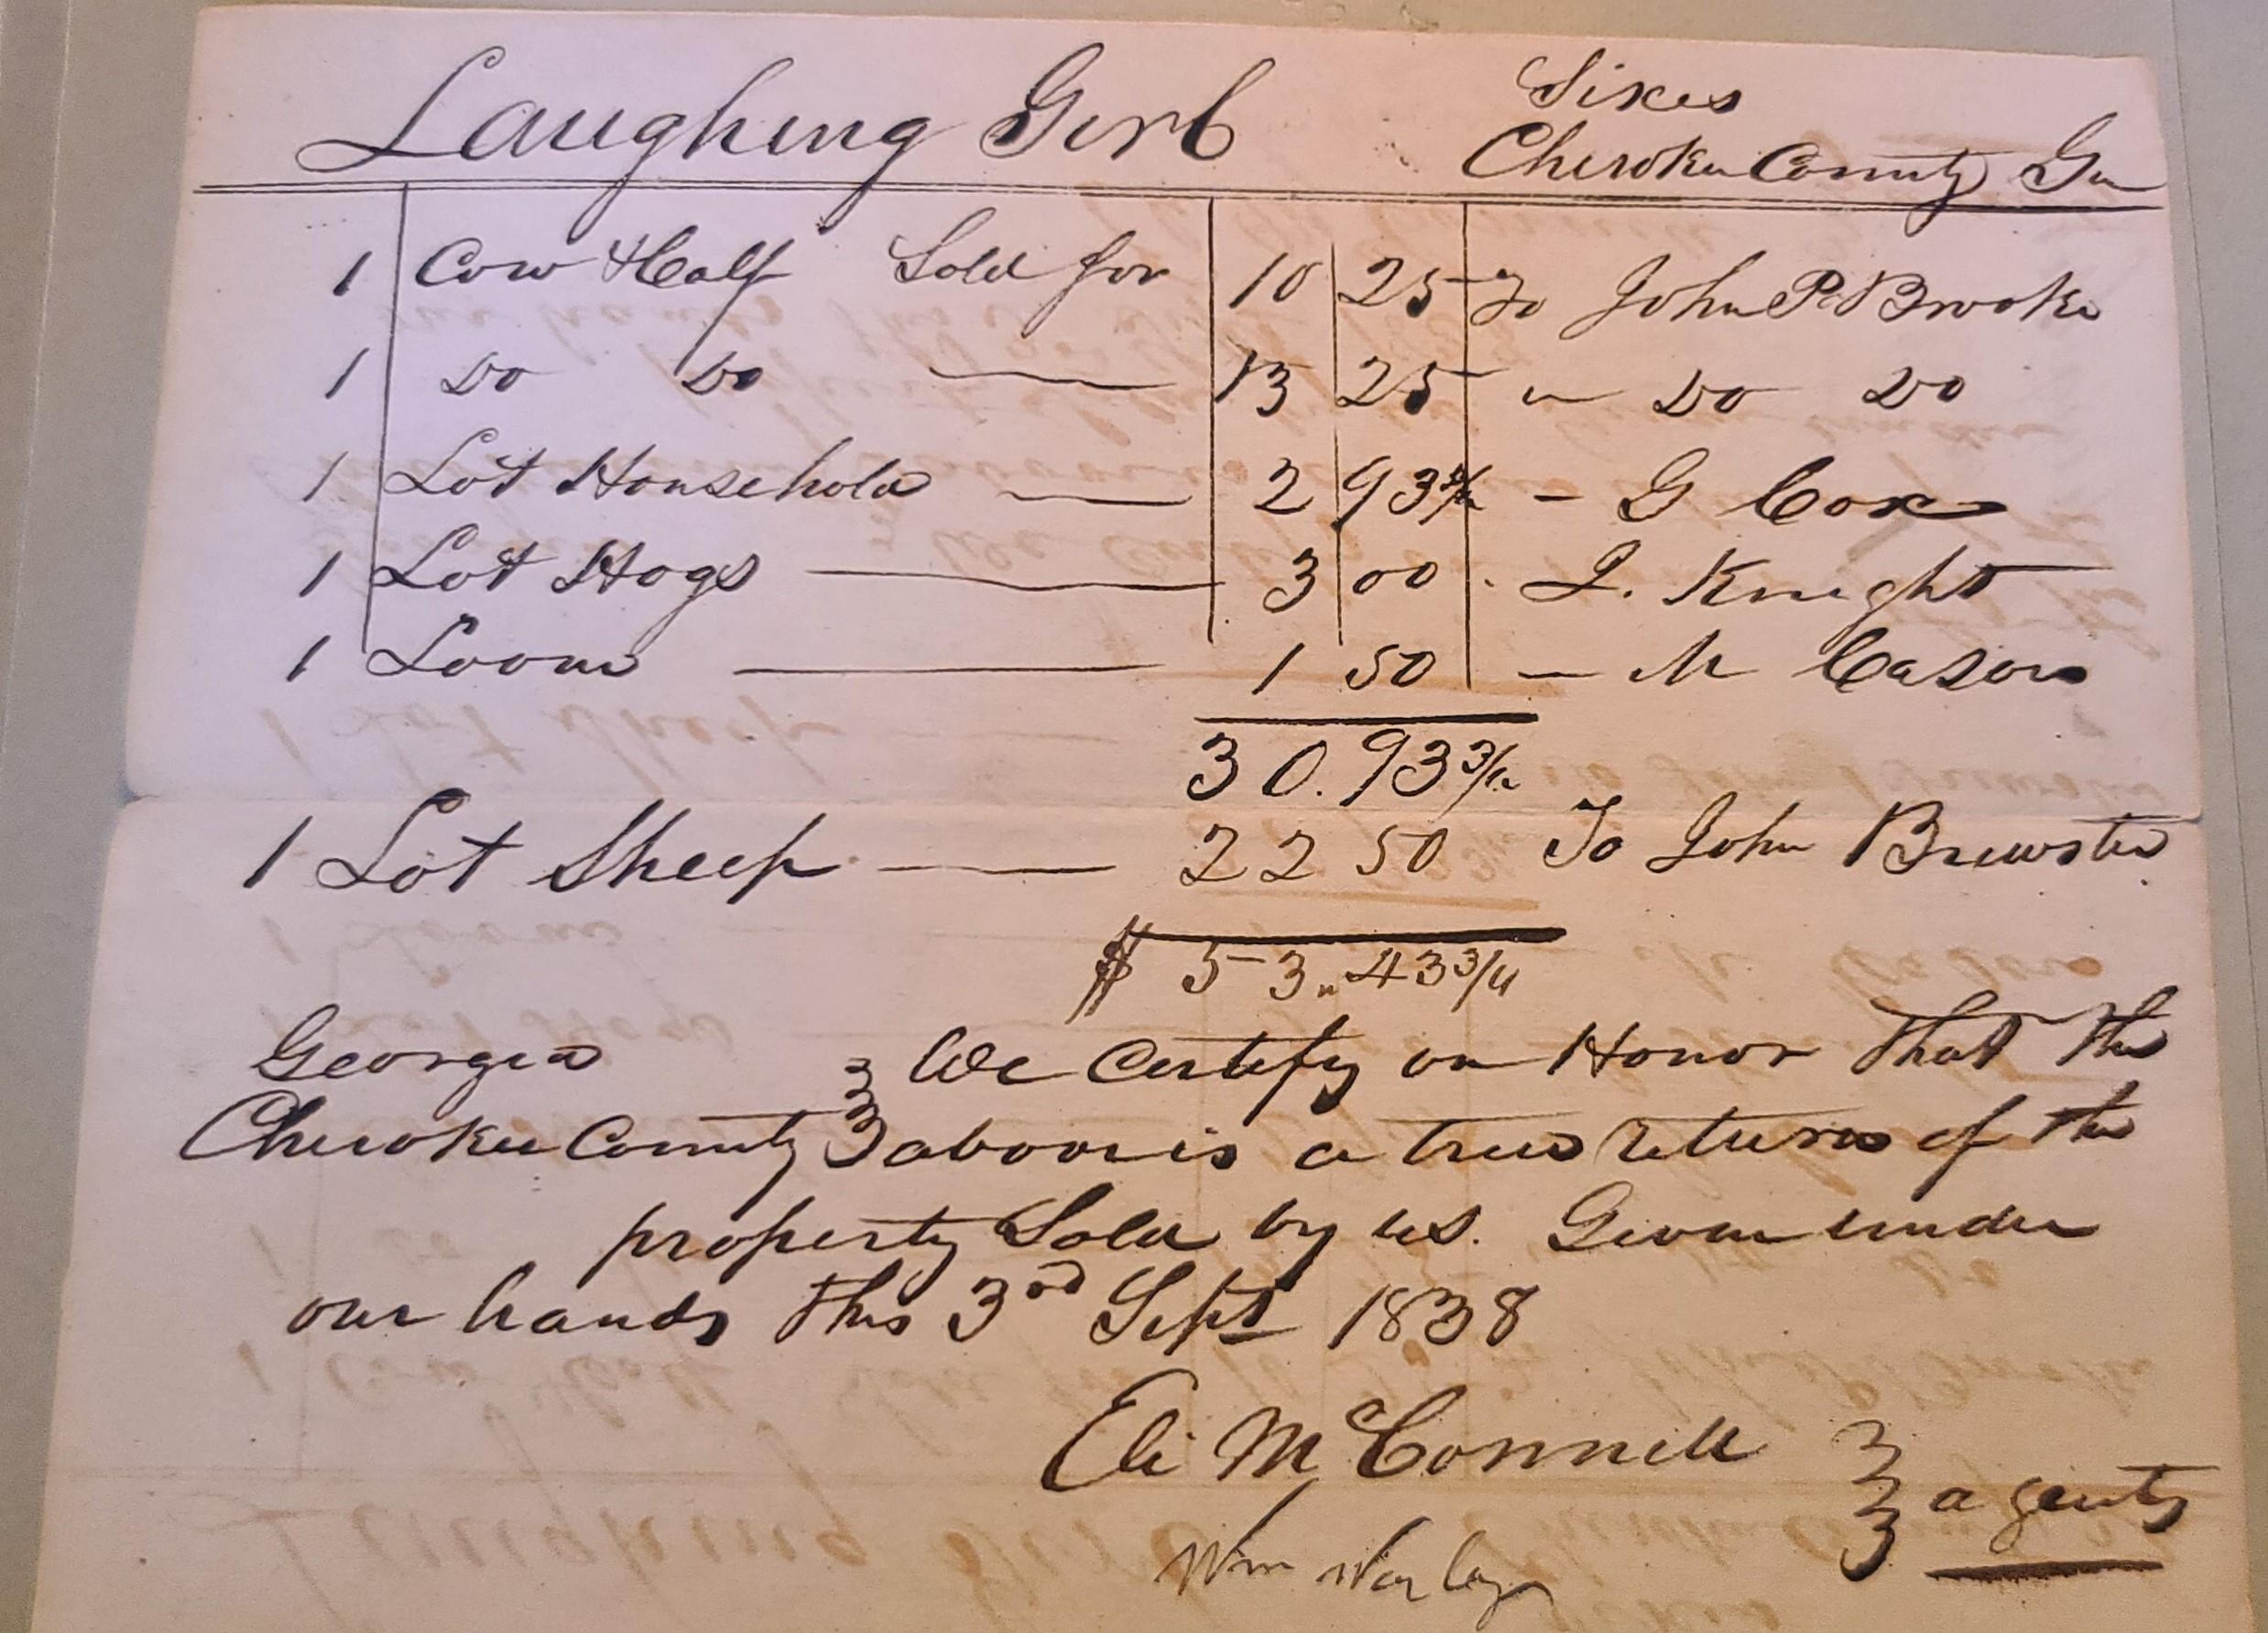 Laughing Girl
Sixes
Cherokee County Ga
1 Cow & Calf Sold for 10 25 To John P Brooke
1 Do Do — 13 25 " Do Do
1 Lot Household — 2 93 3/4 – G Cox
1 Lot Hogs — 3 00 . J. Knight
1 Loom — 1 50 – M Cason
30.93 3/4
1 Lot Sheep — 22 50 To John Brewster
$ 53.43 3/4
Georgia We Certify on Honor that the
Cherokee County above is a true return of the
property Sold by us. Given under
our hands this 3rd Sept 1838
Eli McConnell
agents
Wm